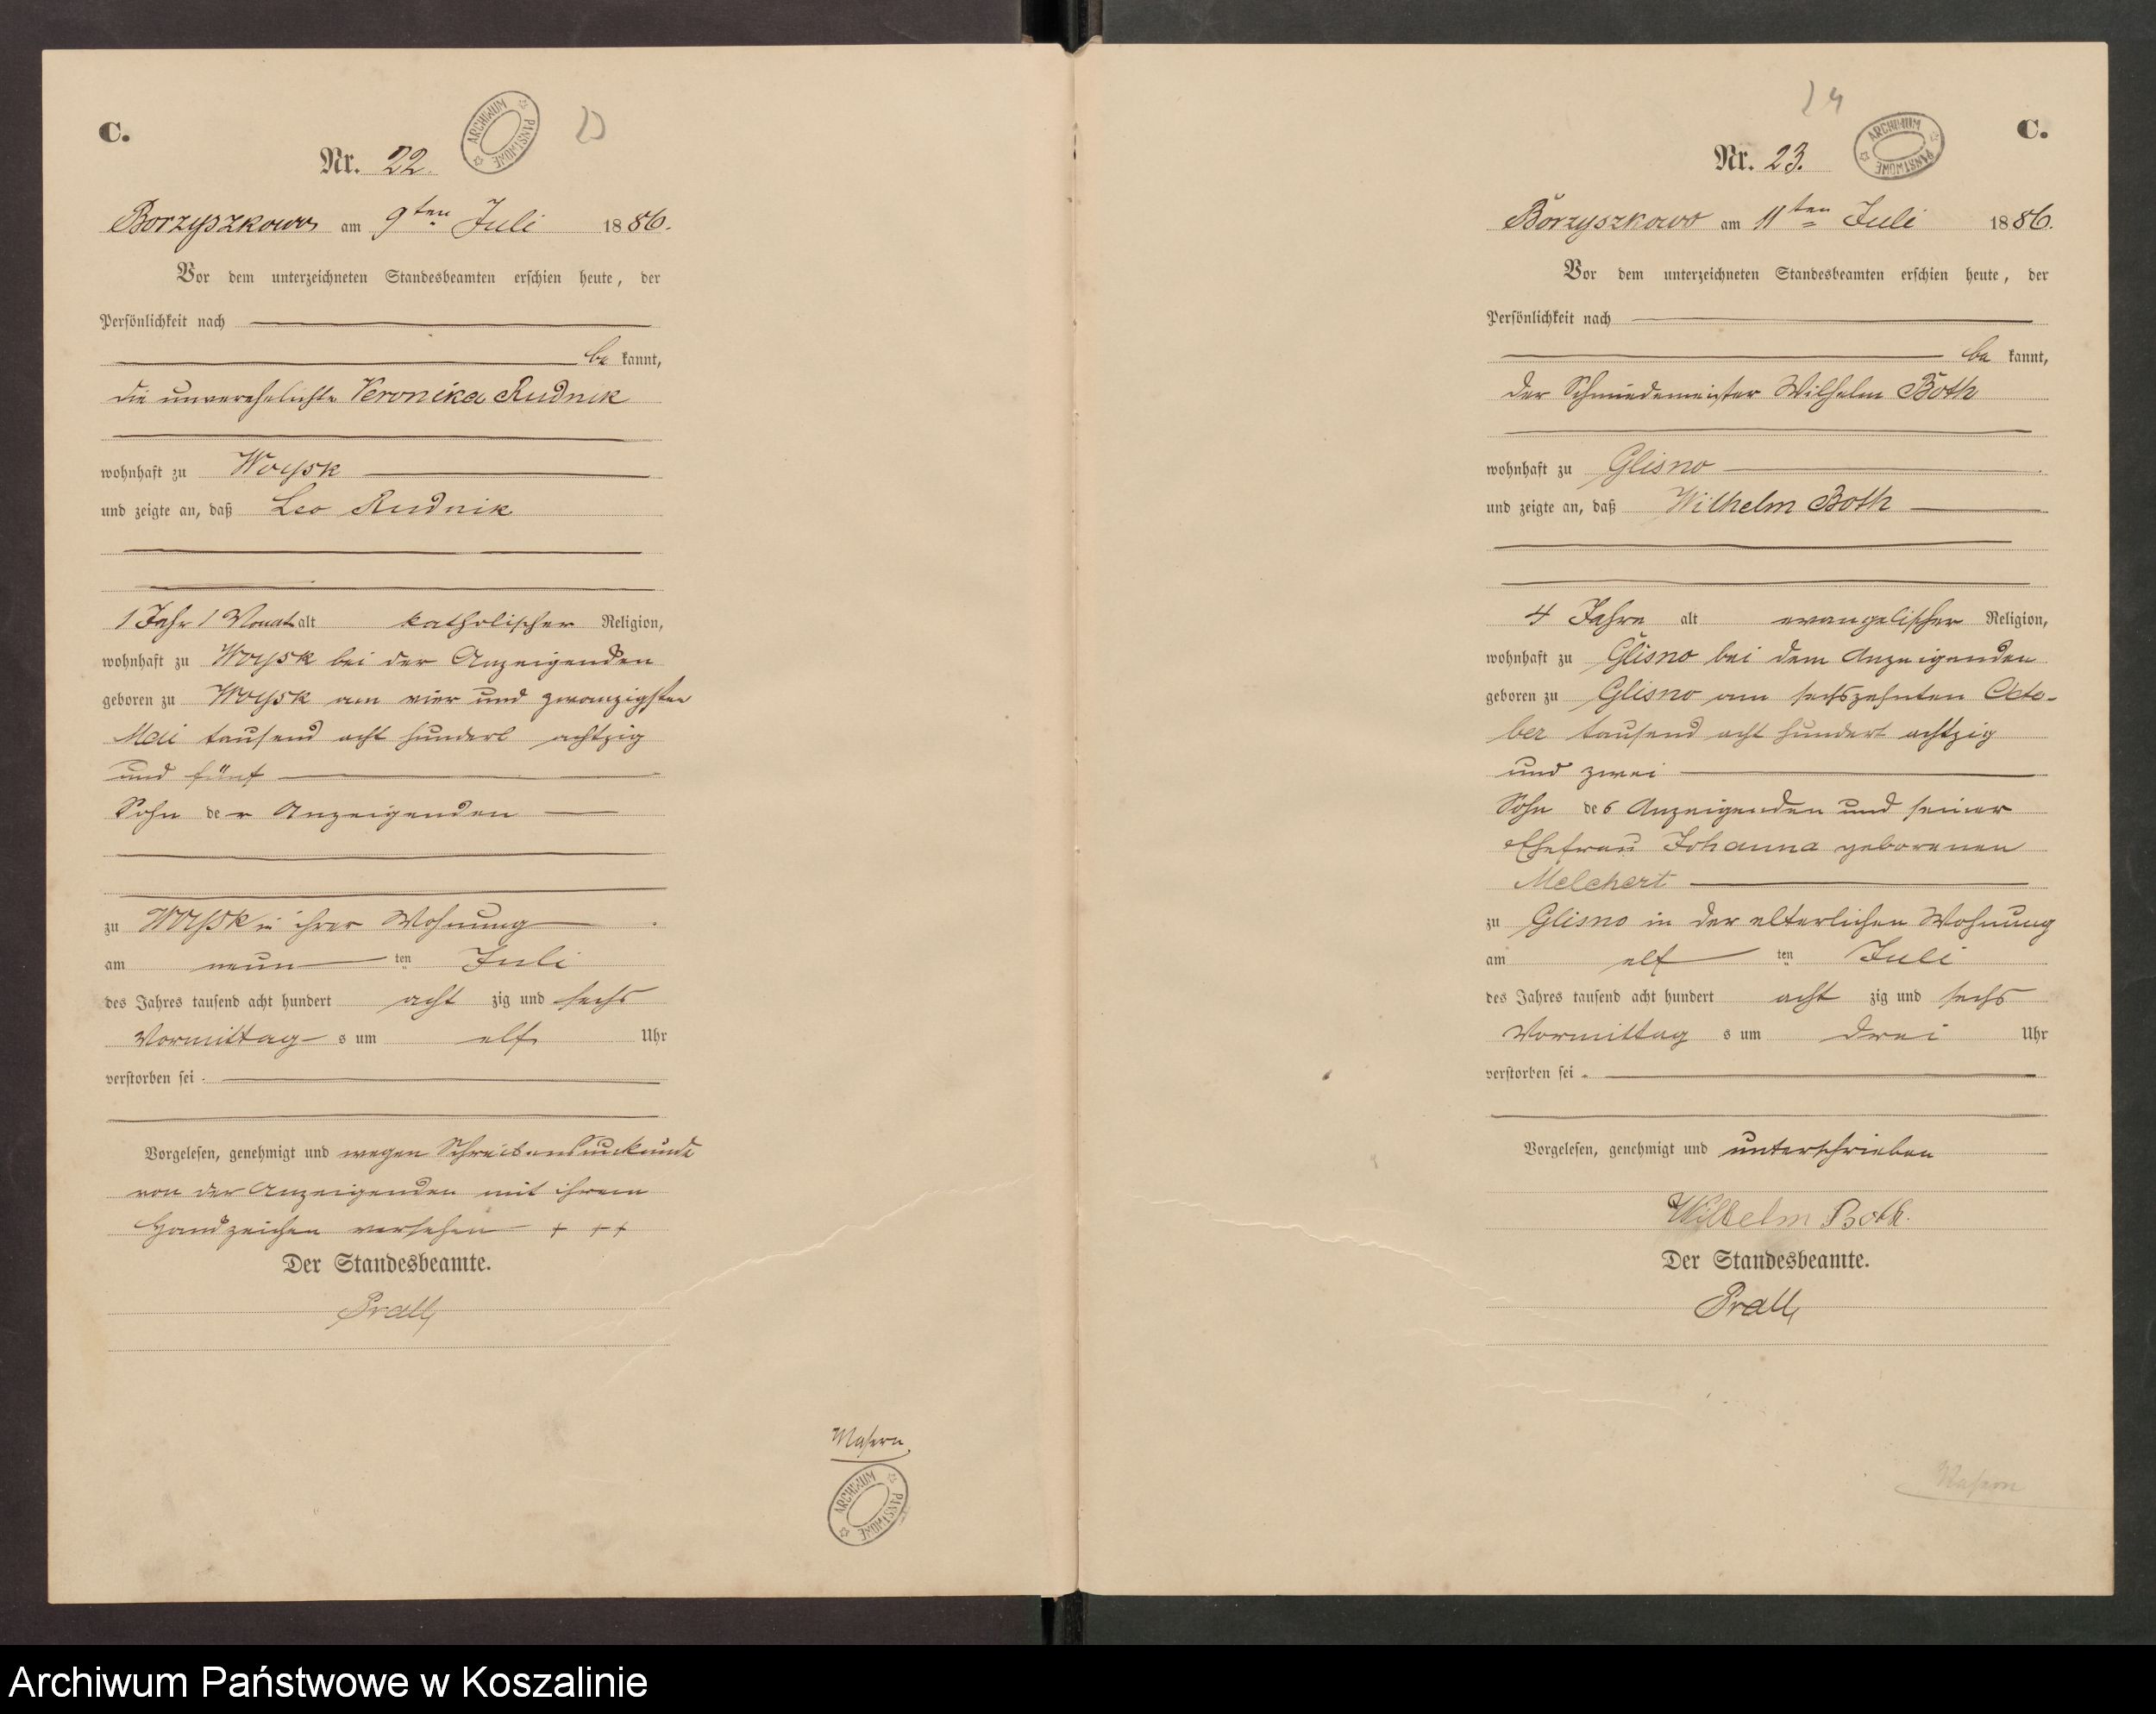 C.
Nr. 22.
ARCHIWUM PAŃSTWOWE
23
Borzyszkowo am 9ten Juli 1886.
Vor dem unterzeichneten Standesbeamten erschien heute, der
Persönlichkeit nach
be kannt,
die unverehelichte Veronika Rudnik
wohnhaft zu Woysk
und zeigte an, daß Leo Rudnik
1 Jahr 1 Monat alt katholischer Religion,
wohnhaft zu Woysk bei der Anzeigenden
geboren zu Woysk am vier und zwanzigsten
Mai tausend acht hundert achtzig
und fünf
Sohn der Anzeigenden
zu Woysk in ihrer Wohnung
am neun ten Juli
des Jahres tausend acht hundert acht zig und sechs
Vormittag s um elf Uhr
verstorben sei
Vorgelesen, genehmigt und wegen Schreibensunkunde
von der Anzeigenden mit ihrem
Handzeichen versehen + + +
Der Standesbeamte.
Prall
Masern
ARCHIWUM PAŃSTWOWE
24
C.
Nr. 23.
ARCHIWUM PAŃSTWOWE
Borzyszkowo am 11ten Juli 1886.
Vor dem unterzeichneten Standesbeamten erschien heute, der
Persönlichkeit nach
be kannt,
der Schmiedemeister Wilhelm Both
wohnhaft zu Glisno
und zeigte an, daß Wilhelm Both
4 Jahre alt evangelischer Religion,
wohnhaft zu Glisno bei dem Anzeigenden
geboren zu Glisno am sechszehnten Octo-
ber tausend acht hundert achtzig
und zwei
Sohn des Anzeigenden und seiner
Ehefrau Johanna geborenen
Melchert
zu Glisno in der elterlichen Wohnung
am elf ten Juli
des Jahres tausend acht hundert acht zig und sechs
Vormittag s um drei Uhr
verstorben sei
Vorgelesen, genehmigt und unterschrieben
Wilhelm Both.
Der Standesbeamte.
Prall
Masern
Archiwum Państwowe w Koszalinie